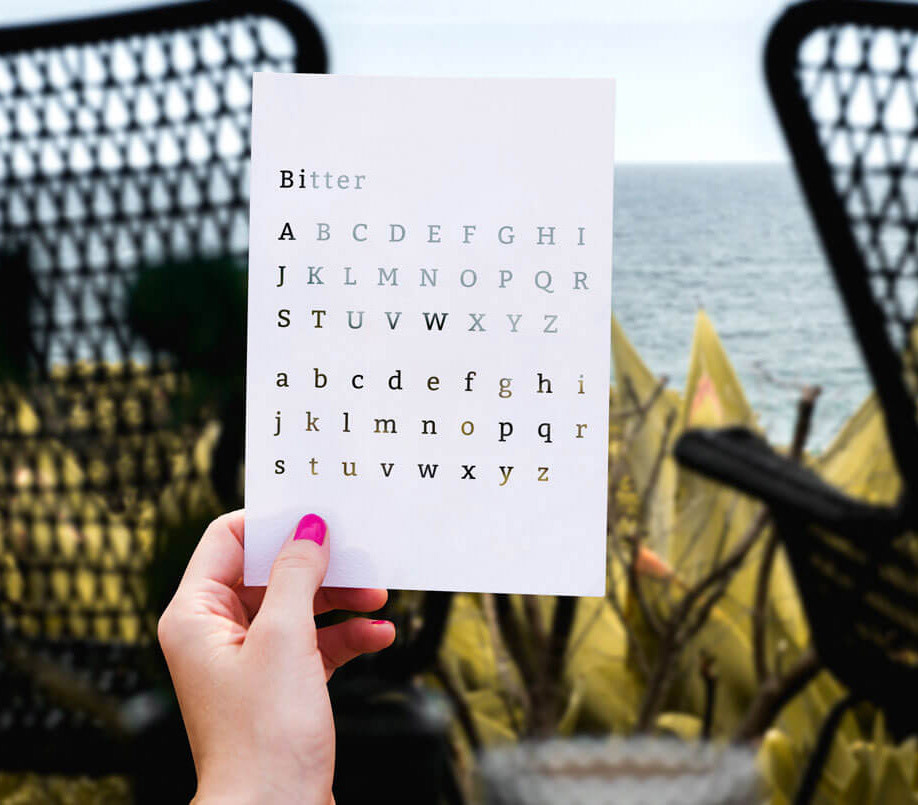 Bitter
A B C D E F G H I
J K L M N O P Q R
S T U V W X Y Z
a b c d e f g h i
j k l m n o p q r
s t u v w x y z